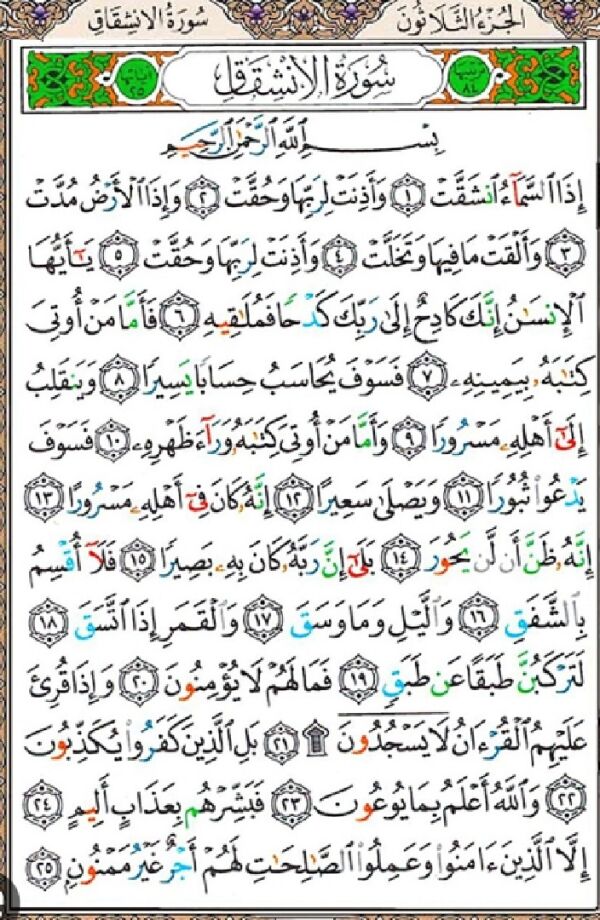 الجزء الثلاثون
سورة الانشقاق
ترتيبها ٨٤
سُورَةُ الِانشِقَاقِ
آياتها ٢٥
بِسْمِ ٱللَّهِ ٱلرَّحْمَٰنِ ٱلرَّحِيمِ
إِذَا ٱلسَّمَآءُ ٱنشَقَّتْ ١ وَأَذِنَتْ لِرَبِّهَا وَحُقَّتْ ٢ وَإِذَا ٱلْأَرْضُ مُدَّتْ
٣ وَأَلْقَتْ مَا فِيهَا وَتَخَلَّتْ ٤ وَأَذِنَتْ لِرَبِّهَا وَحُقَّتْ ٥ يَٰٓأَيُّهَا
ٱلْإِنسَٰنُ إِنَّكَ كَادِحٌ إِلَىٰ رَبِّكَ كَدْحًا فَمُلَٰقِيهِ ٦ فَأَمَّا مَنْ أُوتِىَ
كِتَٰبَهُۥ بِيَمِينِهِۦ ٧ فَسَوْفَ يُحَاسَبُ حِسَابًا يَسِيرًا ٨ وَيَنقَلِبُ
إِلَىٰٓ أَهْلِهِۦ مَسْرُورًا ٩ وَأَمَّا مَنْ أُوتِىَ كِتَٰبَهُۥ وَرَآءَ ظَهْرِهِۦ ١٠ فَسَوْفَ
يَدْعُوا۟ ثُبُورًا ١١ وَيَصْلَىٰ سَعِيرًا ١٢ إِنَّهُۥ كَانَ فِىٓ أَهْلِهِۦ مَسْرُورًا ١٣
إِنَّهُۥ ظَنَّ أَن لَّن يَحُورَ ١٤ بَلَىٰٓ إِنَّ رَبَّهُۥ كَانَ بِهِۦ بَصِيرًا ١٥ فَلَآ أُقْسِمُ
بِٱلشَّفَقِ ١٦ وَٱلَّيْلِ وَمَا وَسَقَ ١٧ وَٱلْقَمَرِ إِذَا ٱتَّسَقَ ١٨
لَتَرْكَبُنَّ طَبَقًا عَن طَبَقٍ ١٩ فَمَا لَهُمْ لَا يُؤْمِنُونَ ٢٠ وَإِذَا قُرِئَ
عَلَيْهِمُ ٱلْقُرْءَانُ لَا يَسْجُدُونَ ۩ ٢١ بَلِ ٱلَّذِينَ كَفَرُوا۟ يُكَذِّبُونَ
٢٢ وَٱللَّهُ أَعْلَمُ بِمَا يُوعُونَ ٢٣ فَبَشِّرْهُم بِعَذَابٍ أَلِيمٍ ٢٤
إِلَّا ٱلَّذِينَ ءَامَنُوا۟ وَعَمِلُوا۟ ٱلصَّٰلِحَٰتِ لَهُمْ أَجْرٌ غَيْرُ مَمْنُونٍۭ ٢٥